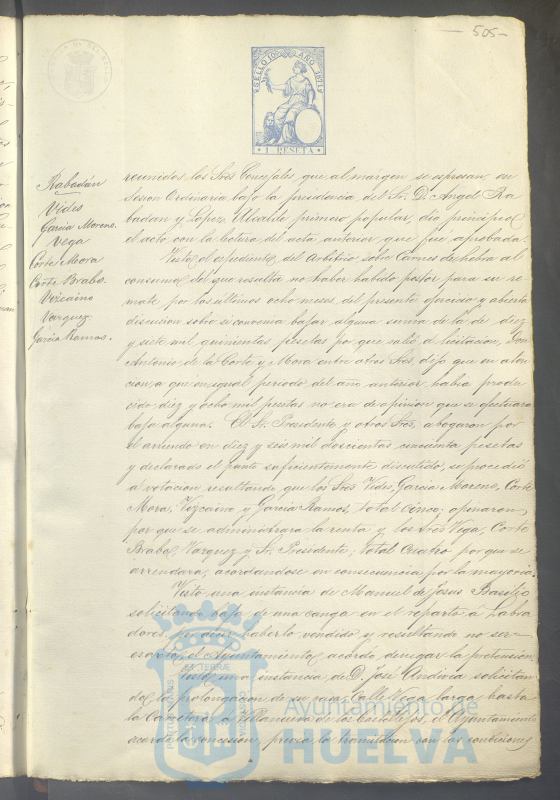 -505-
SELLO 10º AÑO 1871
1 PESETA
Rabadán
Vides
Garcia Moreno.
Vega
Corte Mora
Corte Brabo.
Vizcaino
Vazquez
Garcia Ramos.
reunidos los Sres Concejales que al margen se espresan, en
sesion Ordinaria bajo la presidencia del Sr. D. Angel Ra
badan y Lopez, Alcalde primero popular, dio principio
el acto con la lectura del acta anterior que fué aprobada.
Visto el espediente del Arbitrio sobre Carnes de hebra al
consumo del que resulta no haber habido postor para su re
mate por los ultimos ocho meses del presente ejercicio y abierta
discucion sobre si convenia bajar alguna suma de la de diez
y siete mil quinientas pesetas por que salió á licitacion, Don
Antonio de la Corte y Mora entre otros Sres. dijo que en aten
cion a que en igual periodo del año anterior habia produ
cido diez y ocho mil pesetas no era de opinion que se efectuara
baja alguna. El Sr. Presidente y otros Sres. abogaron por
el arriendo en diez y seis mil doscientas cincuenta pesetas
y declarado el punto suficientemente discutido, se procedió
a votacion resultando que los Sres Vides, Garcia Moreno, Corte
Mora, Vizcaino y Garcia Ramos, total cinco, opinaron
por que se administrara la renta y los Sres Vega, Corte
Brabo, Vazquez y Sr. Presidente, total cuatro por que se
arrendara, acordandose en consecuencia por la mayoria.
Visto una instancia de Manuel de Jesus Basilio
solicitando baja de una canga en el reparto á Labra
dores, por decir haberlo vendido y resultando no ser
el Ayuntamiento acordó denegar la pretension.
Visto una instancia de D. José Andivia solicitan
do la prolongacion de su casa, Calle Vega larga hasta
la Carretera á Villanueva de los Castillejos, el Ayuntamiento
acordó la concesion, previa la tramitacion con las condiciones
Ayuntamiento de
HUELVA